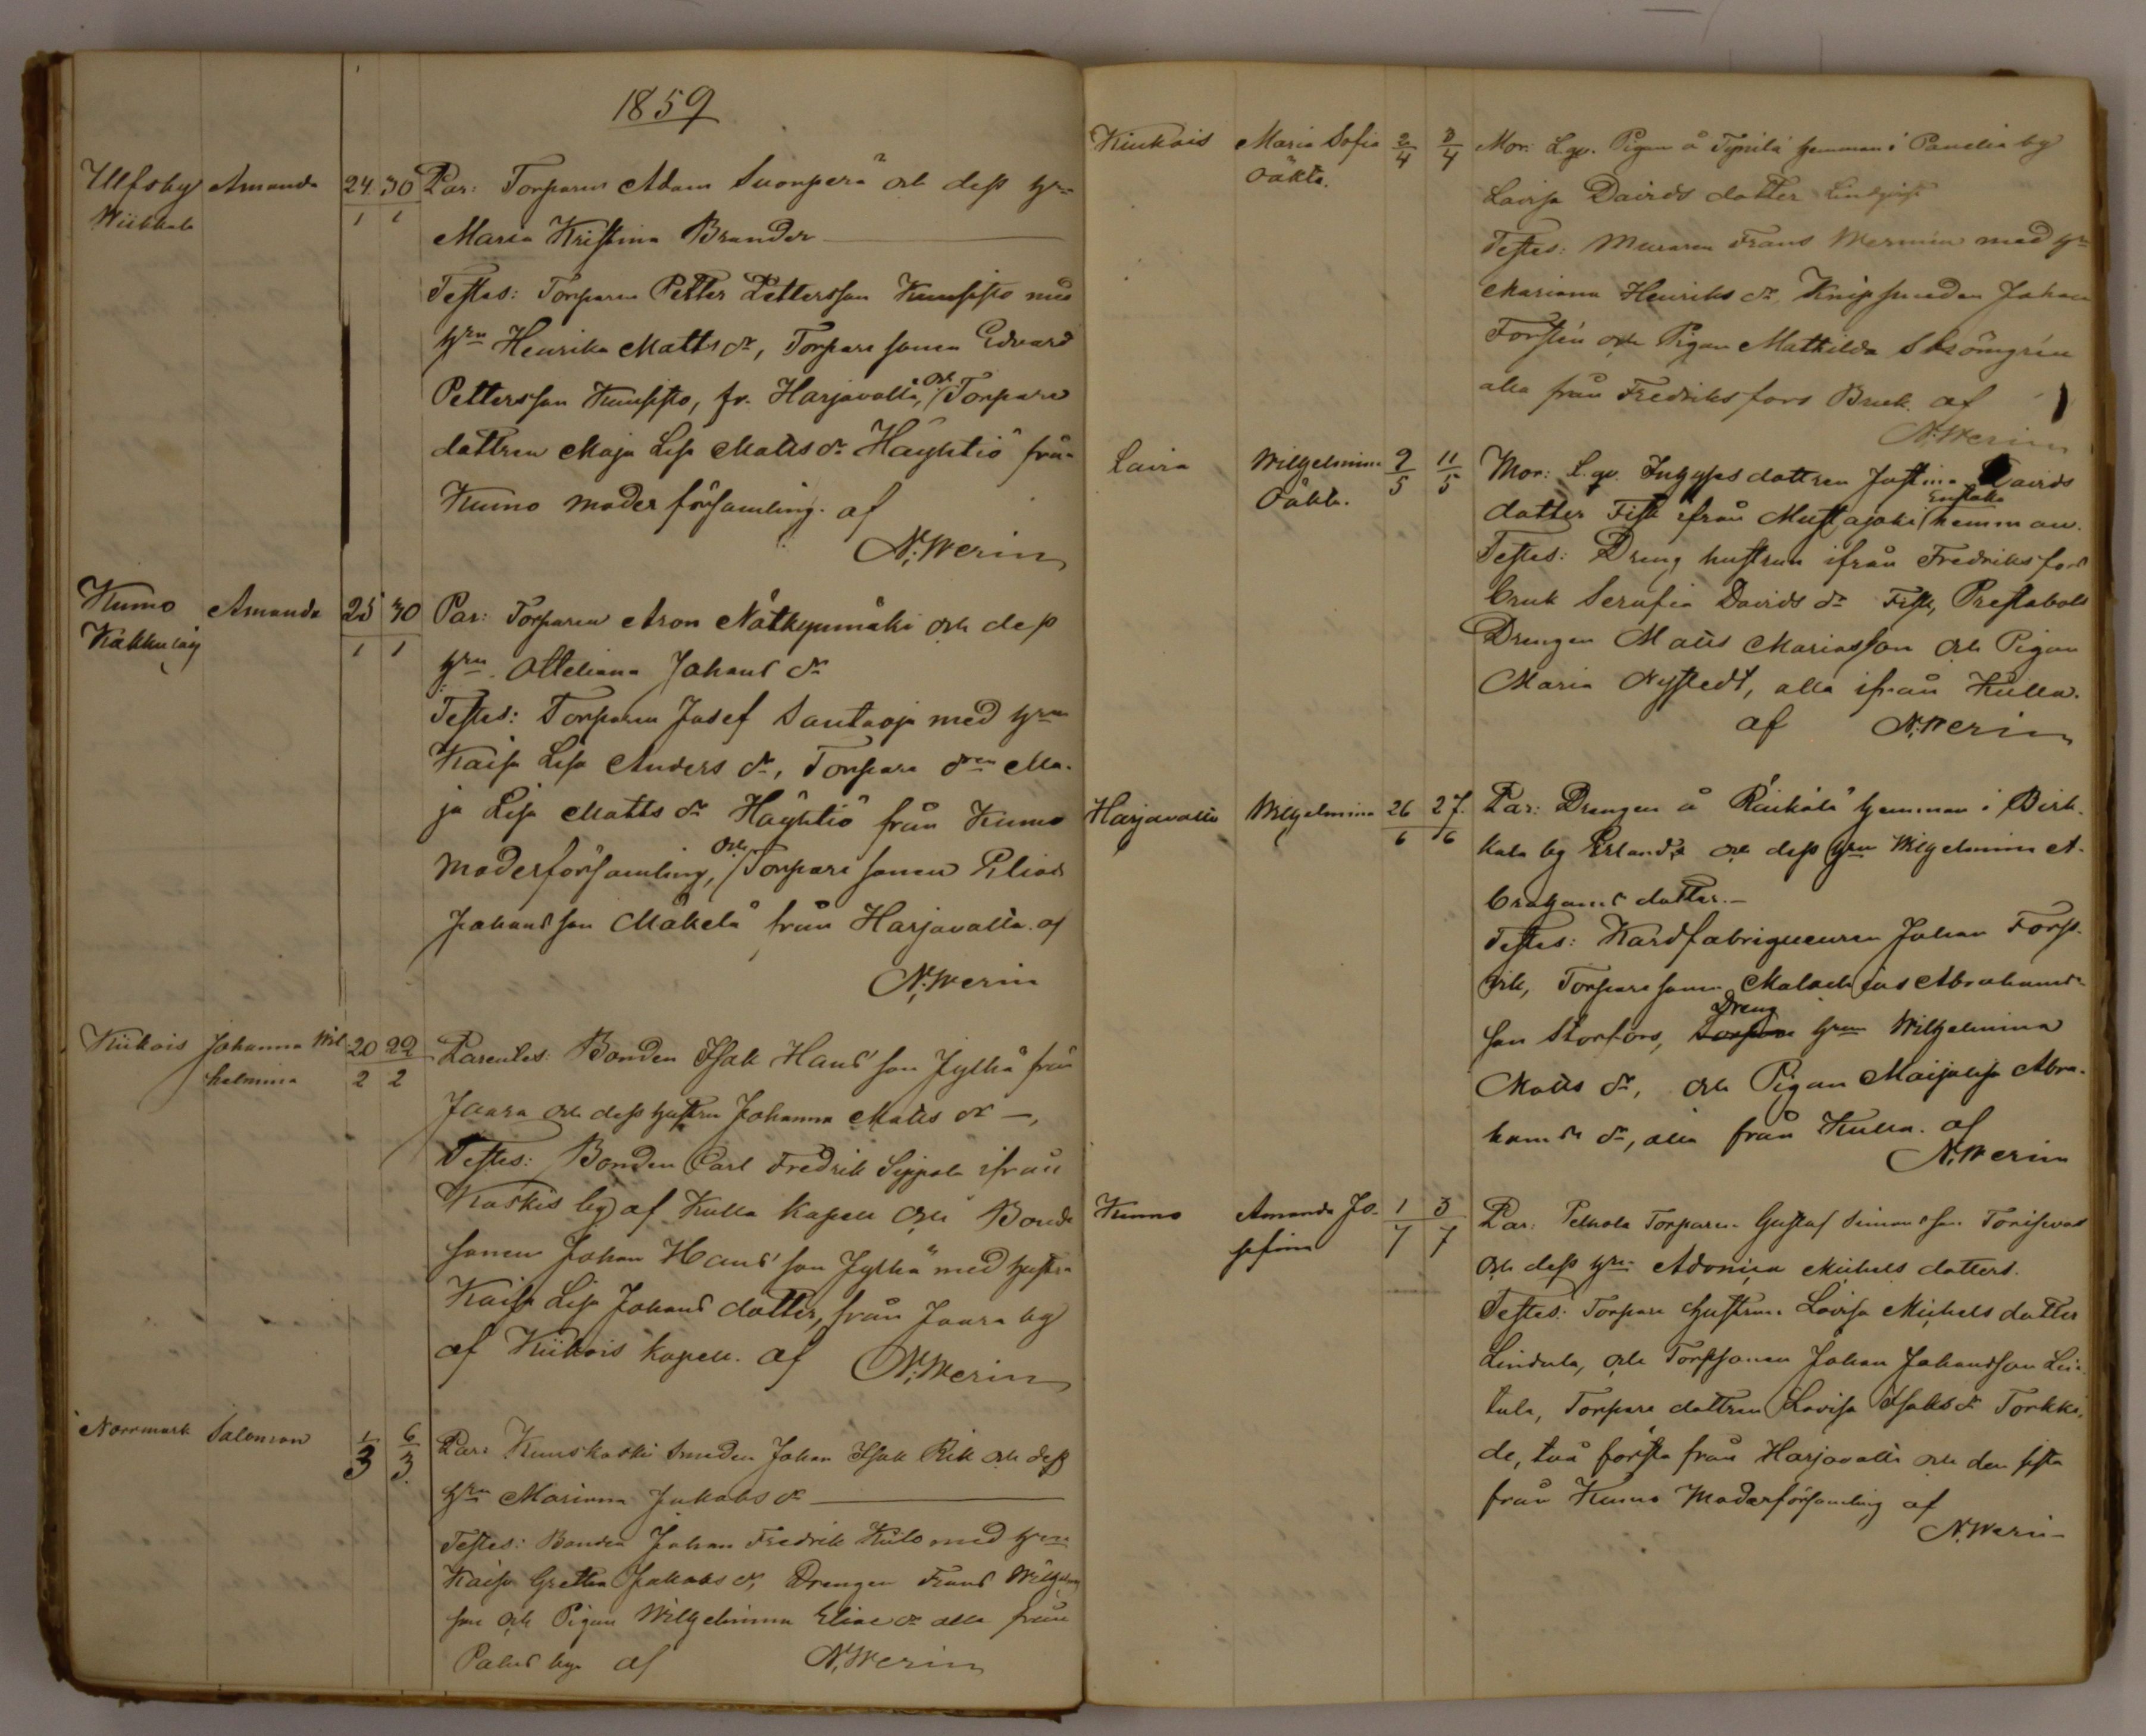 1859
Ulfsby Amanda 24. 30 Par: Torparen Adam Suonperä och dess hu
Wiikkala 1 1 Maria Kristina Brander
Testes: Torparen Petter Pettersson Kuusisto med
hrn Henrika Matts dr, Torpare sonen Edvard
Pettersson Kuusisto, fr. Harjavalla, och Torpare
dottren Maja Lisa Matts dr Häyhtiö från
Kumo moder församling. af
N. Werin
Kumo Amanda 25 30 Par: Torparen Aron Nätkynmäki och dess
1 1 hrn. Otteliana Johans dr
Testes: Torparen Josef Santaoja med hrn
Kaisa Lisa Anders dr, Torpare drn Ma-
ja Lisa Matts dr Häyhtiö från Kumo
moderförsamling, och Torpare sonen Elias
Johansson Mäkelä från Harjavalla. af
N. Werin
Kiikois Johanna Wil 20 22 Parentes: Bonden Isak Hans'son Jylhä från
helmina 2 2 Jaara och dess hustru Johanna Matts dr —,
Testes: Bonden Carl Fredrik Seppola ifrån
Koskis by af Kulla Kapell och Bonde
sonen Johan Hans'son Jylhä med hustru
Kaisa Lisa Johans dotter, från Jaara by
af Kiikois kapell. af N. Werin
Norrmark Salomon 1 6 Par: Smeden Johan Isak Rik och dess
3 3. hrn Marianna Jakobs dr
Testes: Bonden Johan Fredrik Kiilo med hrn
Kaisa Gretha Jakobs dr, Drengen Frans Wilhelms
son och Pigan Wilhelmina Elias dr alla från
Palus by. af N. Werin
Kiukais Maria Sofia 2 3 Mor: L.qv. Pigan å hemman i Panelia by
Oäkta. 4 4 Lovisa Davids dotter Lindqvist
Testes: Muraren Frans Wermin med hrn
Mariana Henriks dr, Knipsmeden Johan
Forstén och Pigan Mathilda Strömgrén
alla från Fredriksfors Bruk. af
N. Werin
Lavia Wilhelmina 9 11 Mor: L. qv. Inhyses dottren Justina Davids
Oäkta. 5 5 dotter Fisk ifrån Mustajoki Enstaka hemman.
Testes: Dreng hustrun ifrån Fredriksfors
bruk Serafia Davids dr Fisk, Prestabols
Drengen Matts Mariasson och Pigan
Maria Nystedt, alla ifrån Kulla.
af N. Werin
Harjavalla Wilhelmina 26 27. Par: Drengen å Räikälä hemman i Birk-
6 6 kala by Erland, och dess hrn Wilhelmina A-
brahams dotter.—
Testes: Kardfabriqueuren Johan Fors-
vik, Torpare sonen Malachias Abrahams-
son Storfors, Dreng hrn Wilhelmina
Matts dr, och Pigan Maijalisa Abra-
hams dr, alla från Kulla. af
N. Werin
Kumo Amanda Jo- 1 3 Par: Torparen Gustaf Simonsson
sefina 7 7 och dess hrn Adonica Michels dotter.
Testes: Torpare hustrun Lovisa Michels dotter
Lindula, och Torpsonen Johan Johansson Lin-
tula, Torpare dottren Lovisa Isaks dr Torkki.
de, två första från Harjavalla och den sista
från Kumo Moderförsamling af
N. Werin